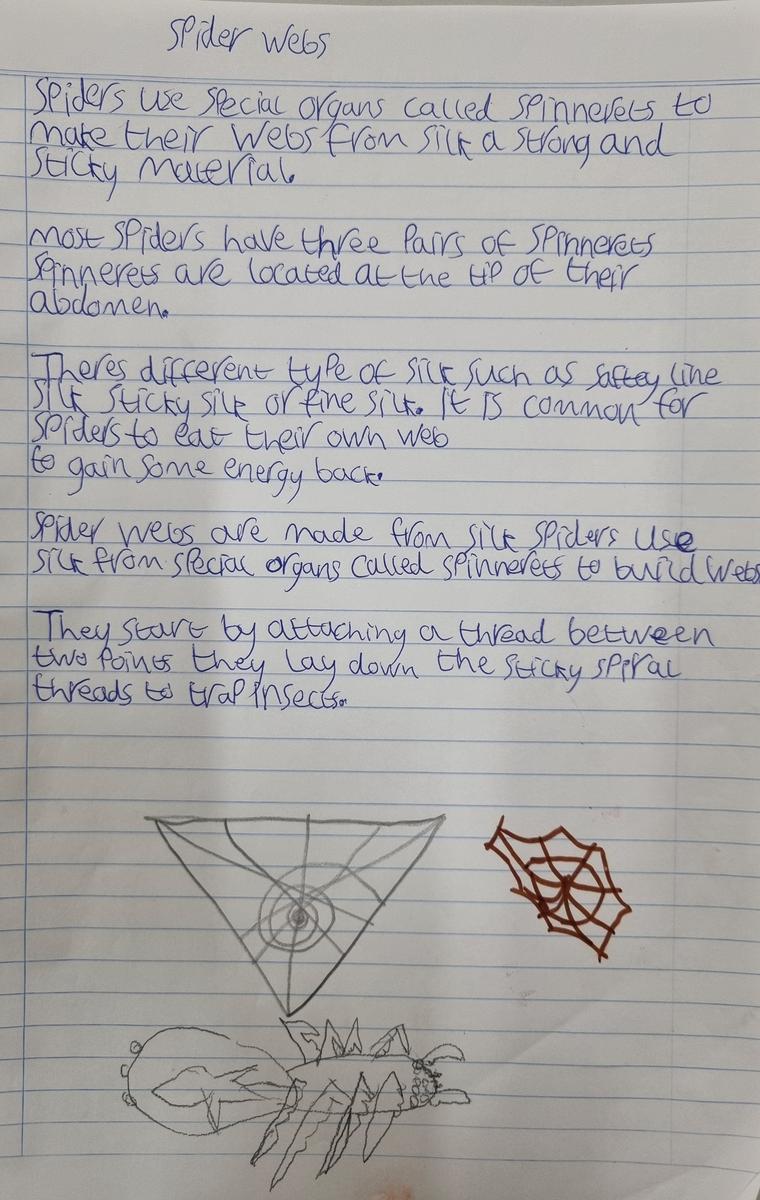 Spider Webs
Spiders use special organs called spinnerets to
make their webs from silk a strong and
sticky material.
most spiders have three pairs of spinnerets
spinnerets are located at the tip of their
abdomen.
Theres different type of silk such as saftey line
silk sticky silk or fine silk. it is common for
spiders to eat their own web
to gain some energy back.
spider webs are made from silk spiders use
silk from special organs called spinnerets to build webs
They start by attaching a thread between
two points they lay down the sticky spiral
threads to trap insects.